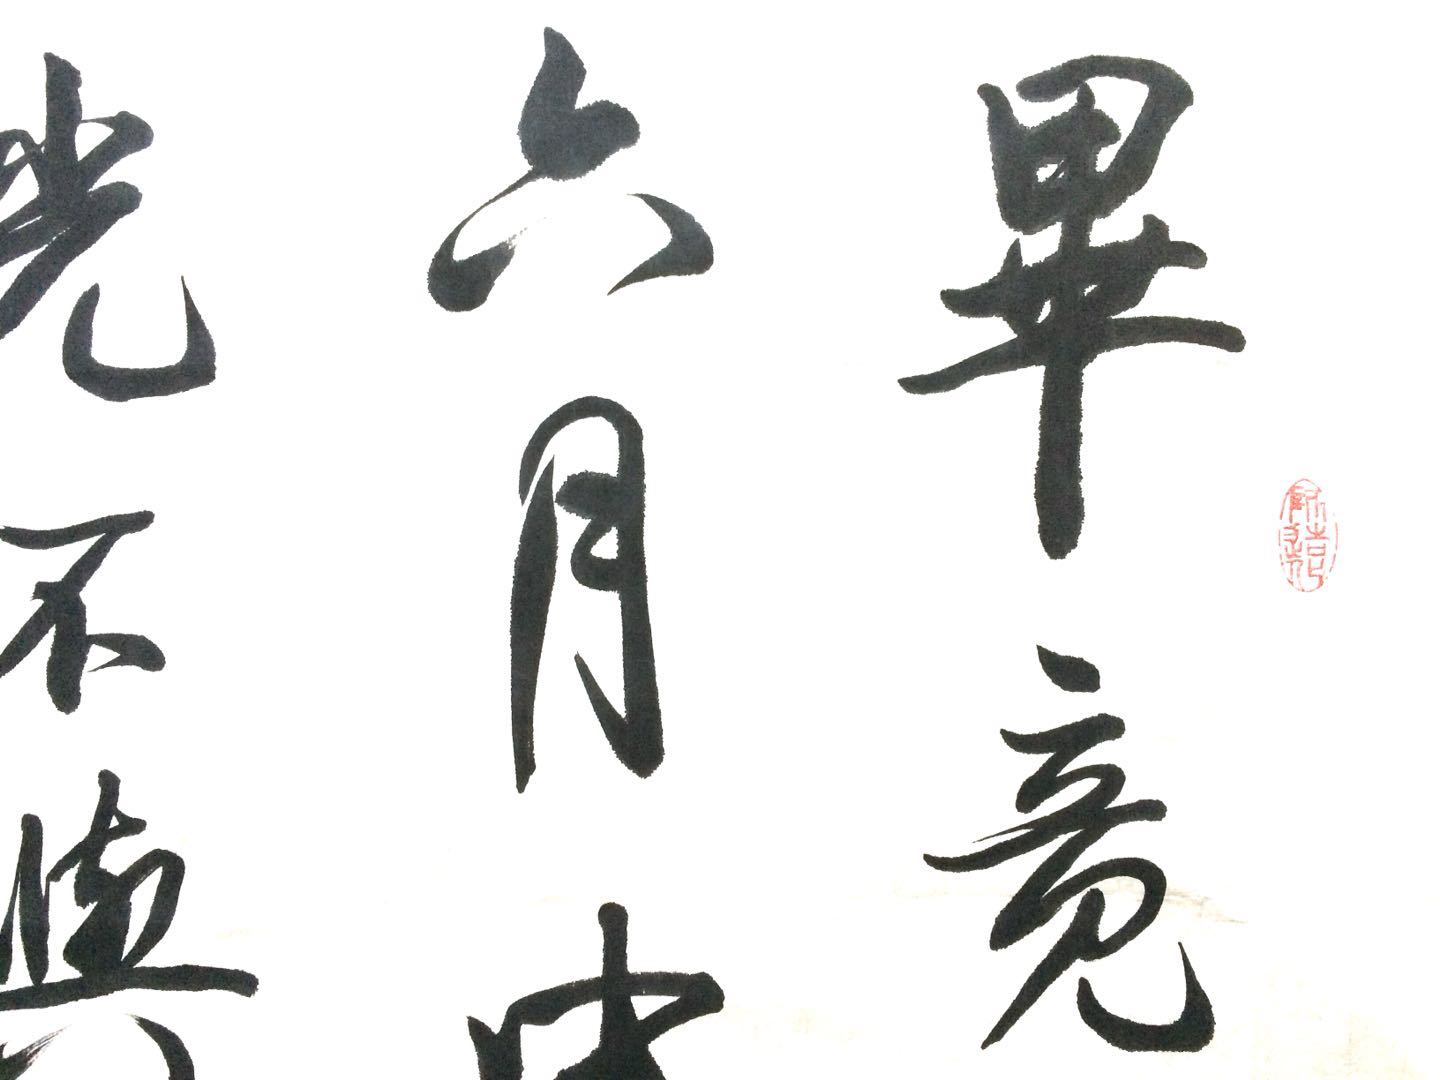 畢竟
六月中
光不與